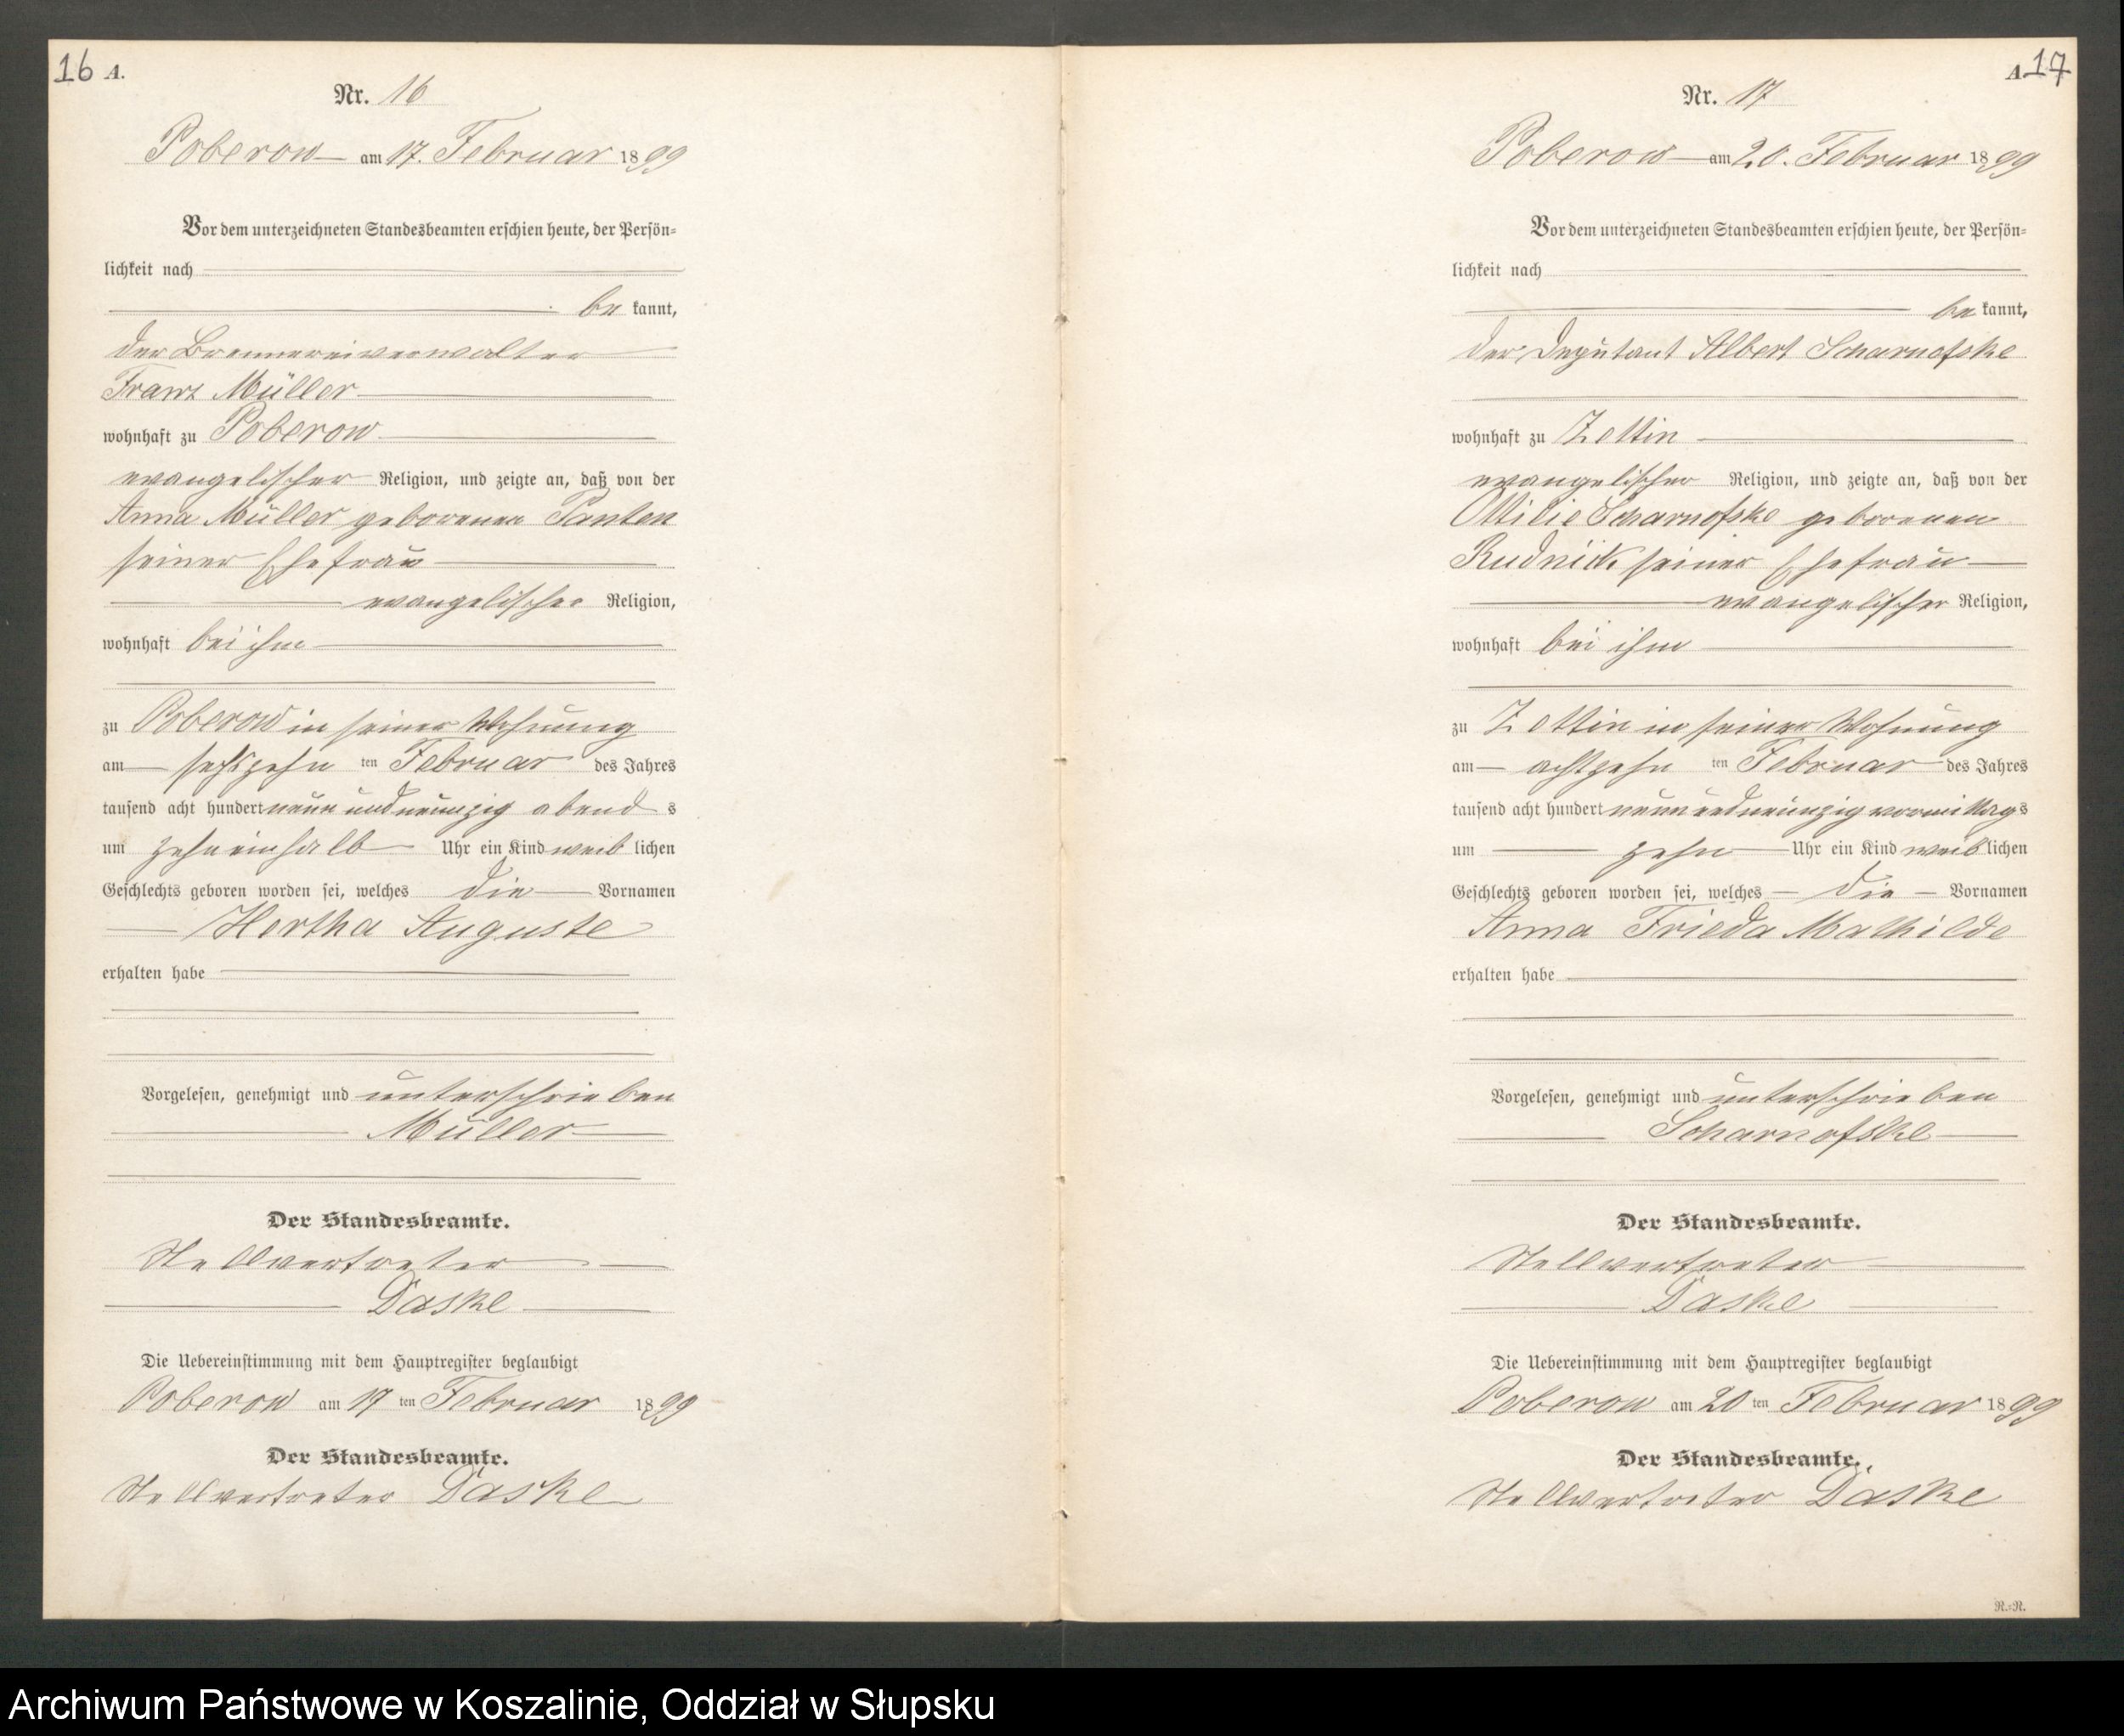 16 A.
Nr. 16
Poberow am 17. Februar 1899
Vor dem unterzeichneten Standesbeamten erschien heute, der Persön=
lichkeit nach
be kannt,
der Brennereiverwalter
Franz Müller
wohnhaft zu Poberow
evangelischer Religion, und zeigte an, daß von der
Anna Müller geborenen Panten
seiner Ehefrau
evangelischer Religion,
wohnhaft bei ihm
zu Poberow in seiner Wohnung
am sechszehn ten Februar des Jahres
tausend acht hundert neun und neunzig abend s
um zehn ein halb Uhr ein Kind weib lichen
Geschlechts geboren worden sei, welches die Vornamen
Hertha Auguste
erhalten habe
Vorgelesen, genehmigt und unterschrieben
Müller
Der Standesbeamte.
Stellvertreter
Daske
Die Uebereinstimmung mit dem Hauptregister beglaubigt
Poberow am 17 ten Februar 1899
Der Standesbeamte.
Stellvertreter Daske
A. 17
Nr. 17
Poberow am 20. Februar 1899
Vor dem unterzeichneten Standesbeamten erschien heute, der Persön=
lichkeit nach
be kannt,
der Deputant Albert Scharnofske
wohnhaft zu Zettin
evangelischer Religion, und zeigte an, daß von der
Ottilie Scharnofske geborenen
Rudnick seiner Ehefrau
evangelischer Religion,
wohnhaft bei ihm
zu Zettin in seiner Wohnung
am achtzehn ten Februar des Jahres
tausend acht hundert neun und neunzig vormittags
um zehn Uhr ein Kind weib lichen
Geschlechts geboren worden sei, welches die Vornamen
Anna Frieda Mathilde
erhalten habe
Vorgelesen, genehmigt und unterschrieben
Scharnofske
Der Standesbeamte.
Stellvertreter
Daske
Die Uebereinstimmung mit dem Hauptregister beglaubigt
Poberow am 20 ten Februar 1899
Der Standesbeamte.
Stellvertreter Daske
R.=R.
Archiwum Państwowe w Koszalinie, Oddział w Słupsku